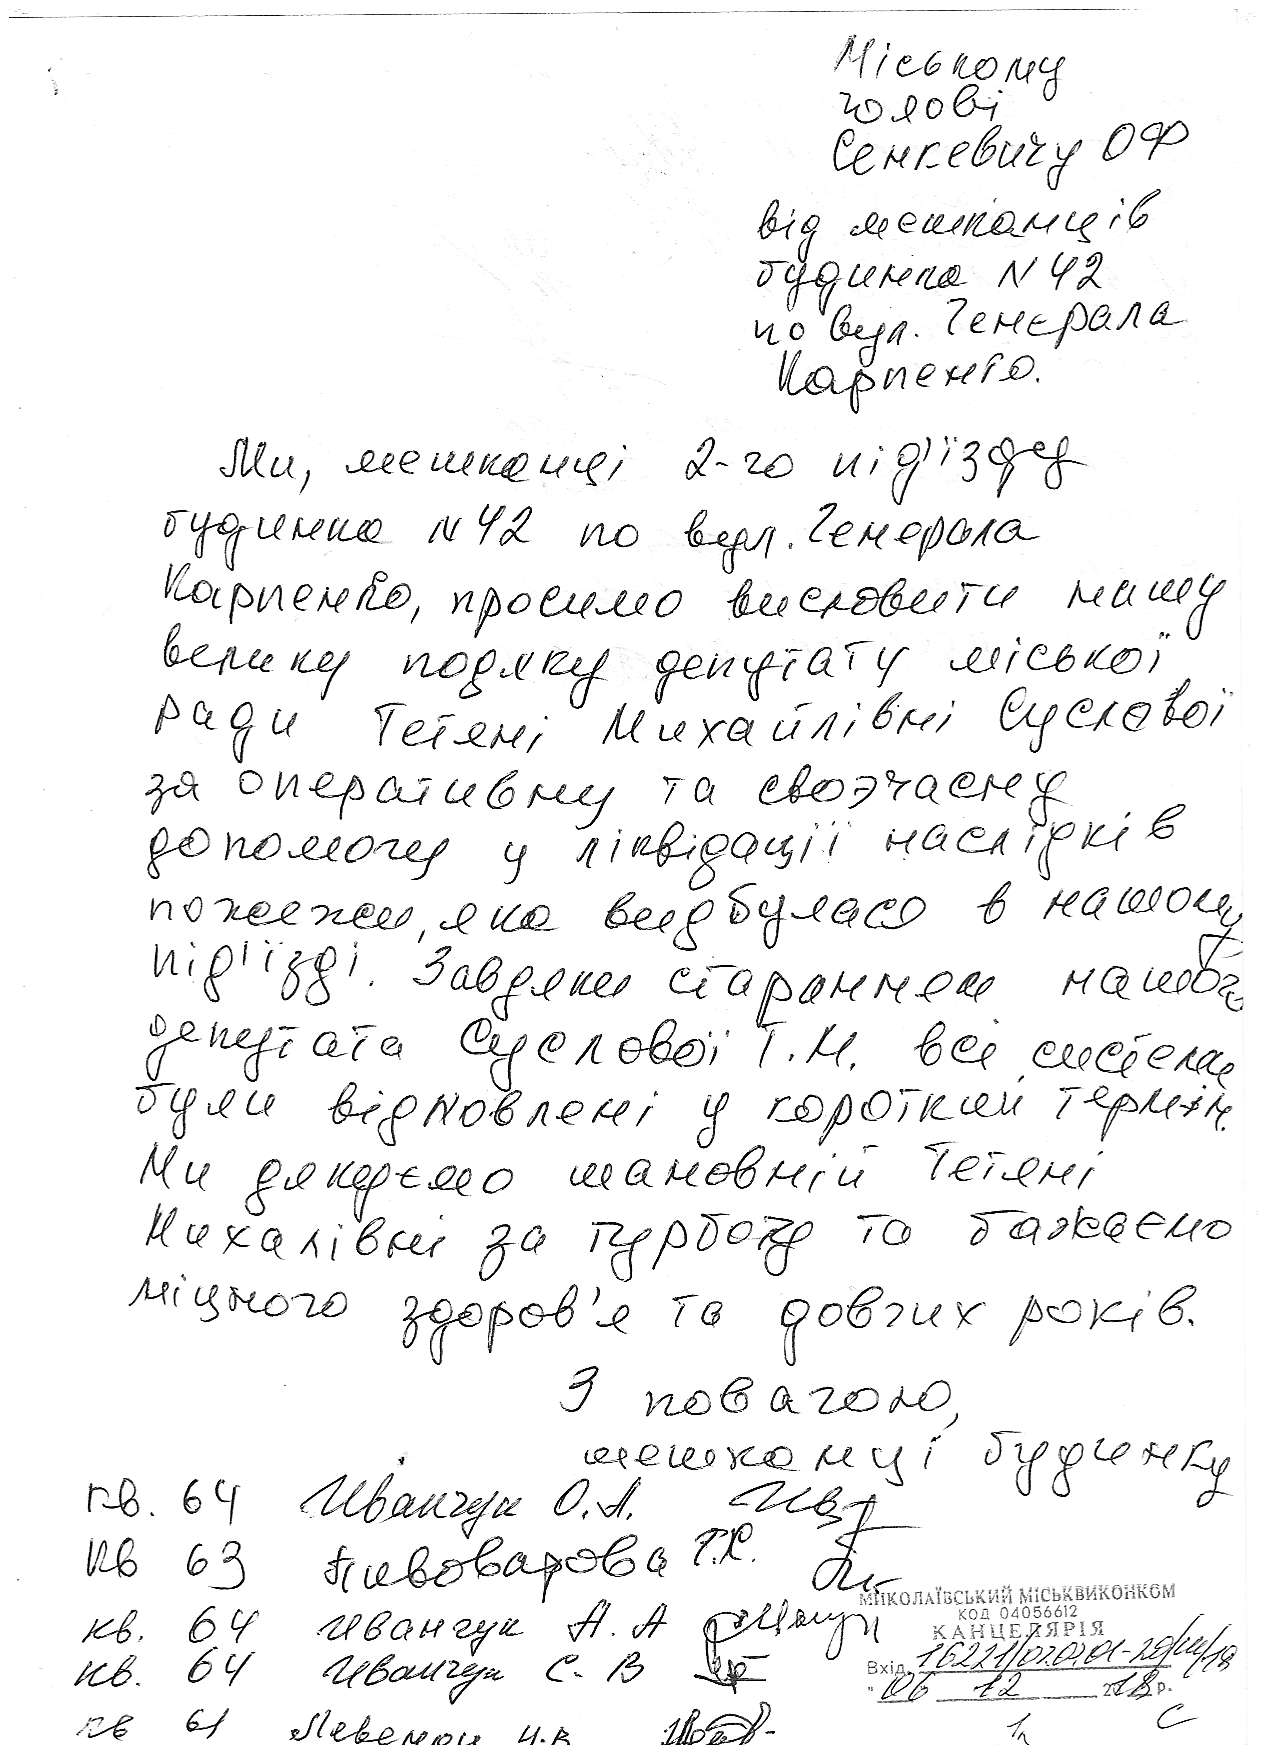 Міському
голові
Сенкевичу ОФ
від мешканців
будинка N 42
по вул. Генерала
Карпенко.
Ми, мешканці 2-го під'їзду
будинка N 42 по вул. Генерала
Карпенко, просимо висловити нашу
велику подяку депутату міської
ради Тетяні Михайлівні Сусловой
за оперативну та своэчасну
допомогу у ліквідації наслідків
пожежи, яка видбулася в нашому
під'їзді. Завдяки старанням нашого
депутата Суслової Т.М. всі системи
були відновлені у короткий термін.
Ми дякуємо шановній Тетяні
Михалівні за турботу та бажаємо
міцного здоров'я та довгих років.
З повагою,
мешканці будинку
кв. 64 Иванчук О.А.
кв 63 Пивоварова Т.К.
кв. 64 Иванчук А. А
кв. 64 Иванчук С. В
кв 61
МИКОЛАЇВСЬКИЙ МІСЬКВИКОНКОМ
КОД 04056612
КАНЦЕЛЯРІЯ
Вхід. 16221/02.02.01-20/14/18
"06 12 2018 р.